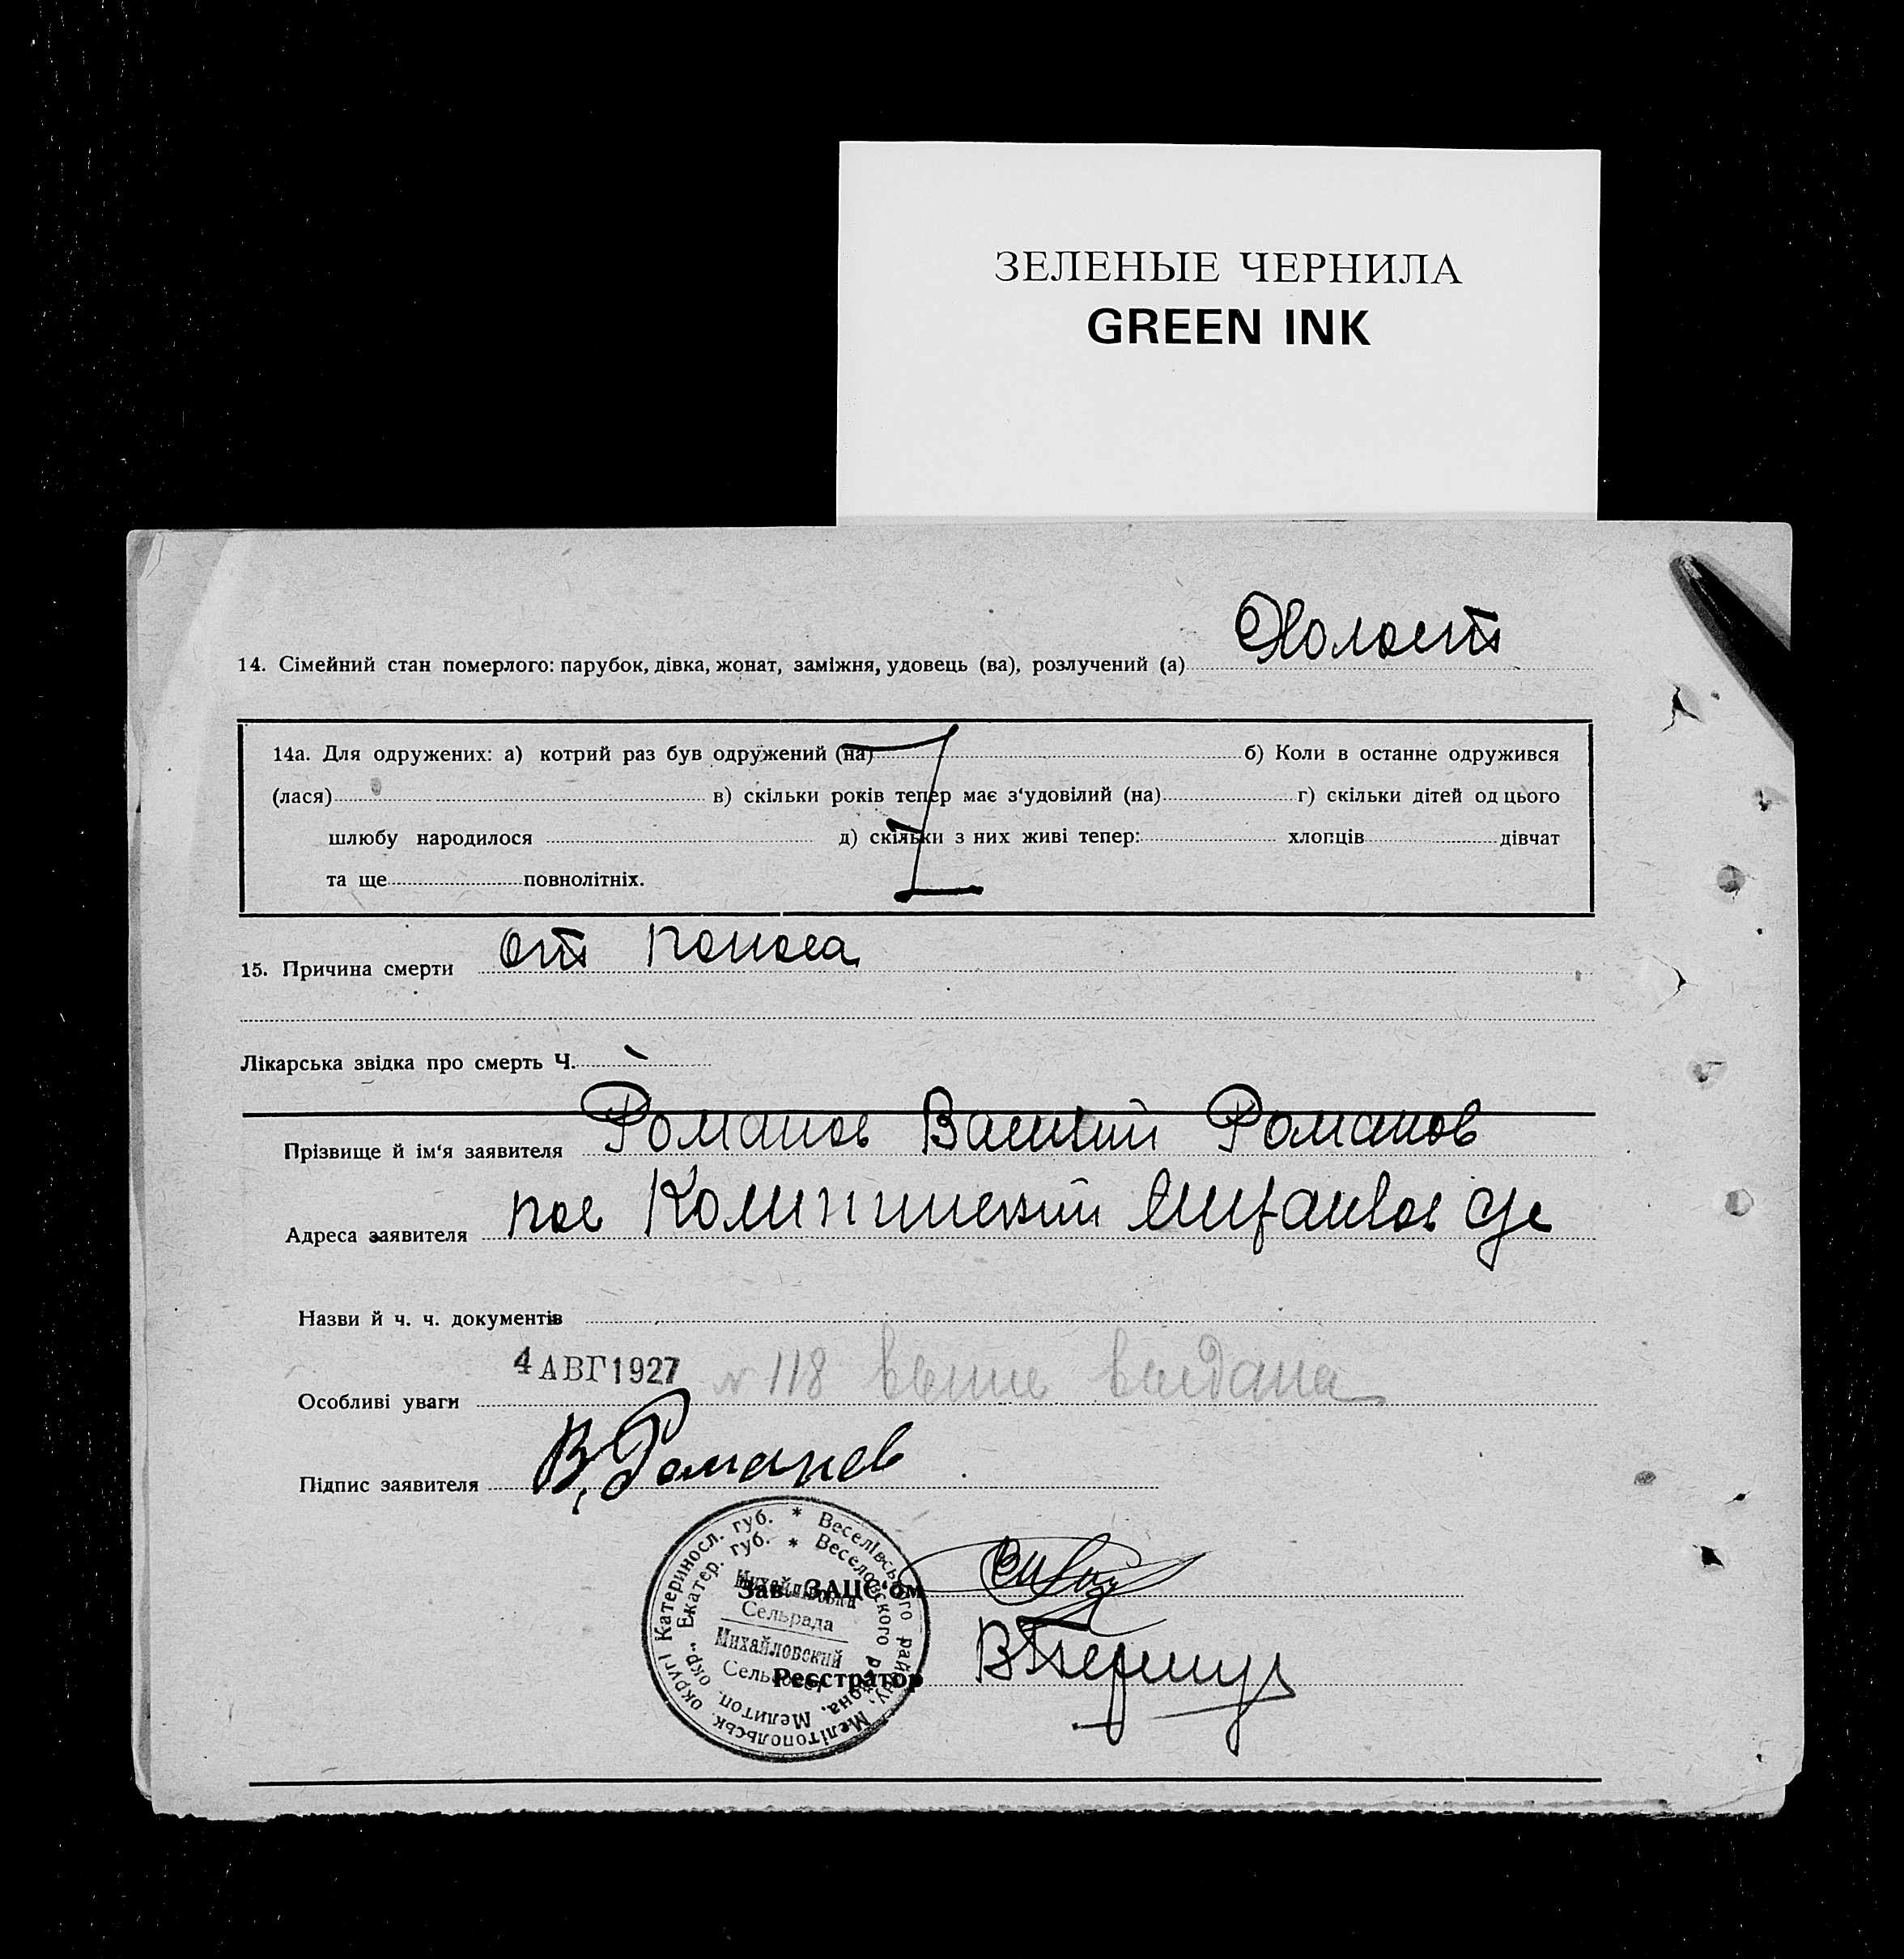 ЗЕЛЕНЫЕ ЧЕРНИЛА
GREEN INK
14. Сімейний стан померлого: парубок, дівка, жонат, заміжня, удовець (ва), розлучений (а) Холост
14а. Для одружених: а) котрий раз був одружений (на) б) Коли в останне одружився
(лася) в) скільки років тепер має з‘удовілий (на) г) скільки дітей од цього
шлюбу народилося д) скільки з них живі тепер: хлопців дівчат
та ще повнолітніх.
15. Причина смерти от поноса
Лікарська звідка про смерть Ч.
Прізвище й ім‘я заявителя Романов Василий Романов
Адреса заявителя пос
Назви й ч. ч. документів
4 АВГ 1927 № 118 выдана
Особливі уваги
Підпис заявителя В. Романов
Зав. ЗАЦС‘ом
Реєстратор
Веселівського району, Мелітопольськ. округі Катериносл. губ. *
Веселовского района, Мелитоп. окр. Екатер. губ. *
Сельрада
Михайловский